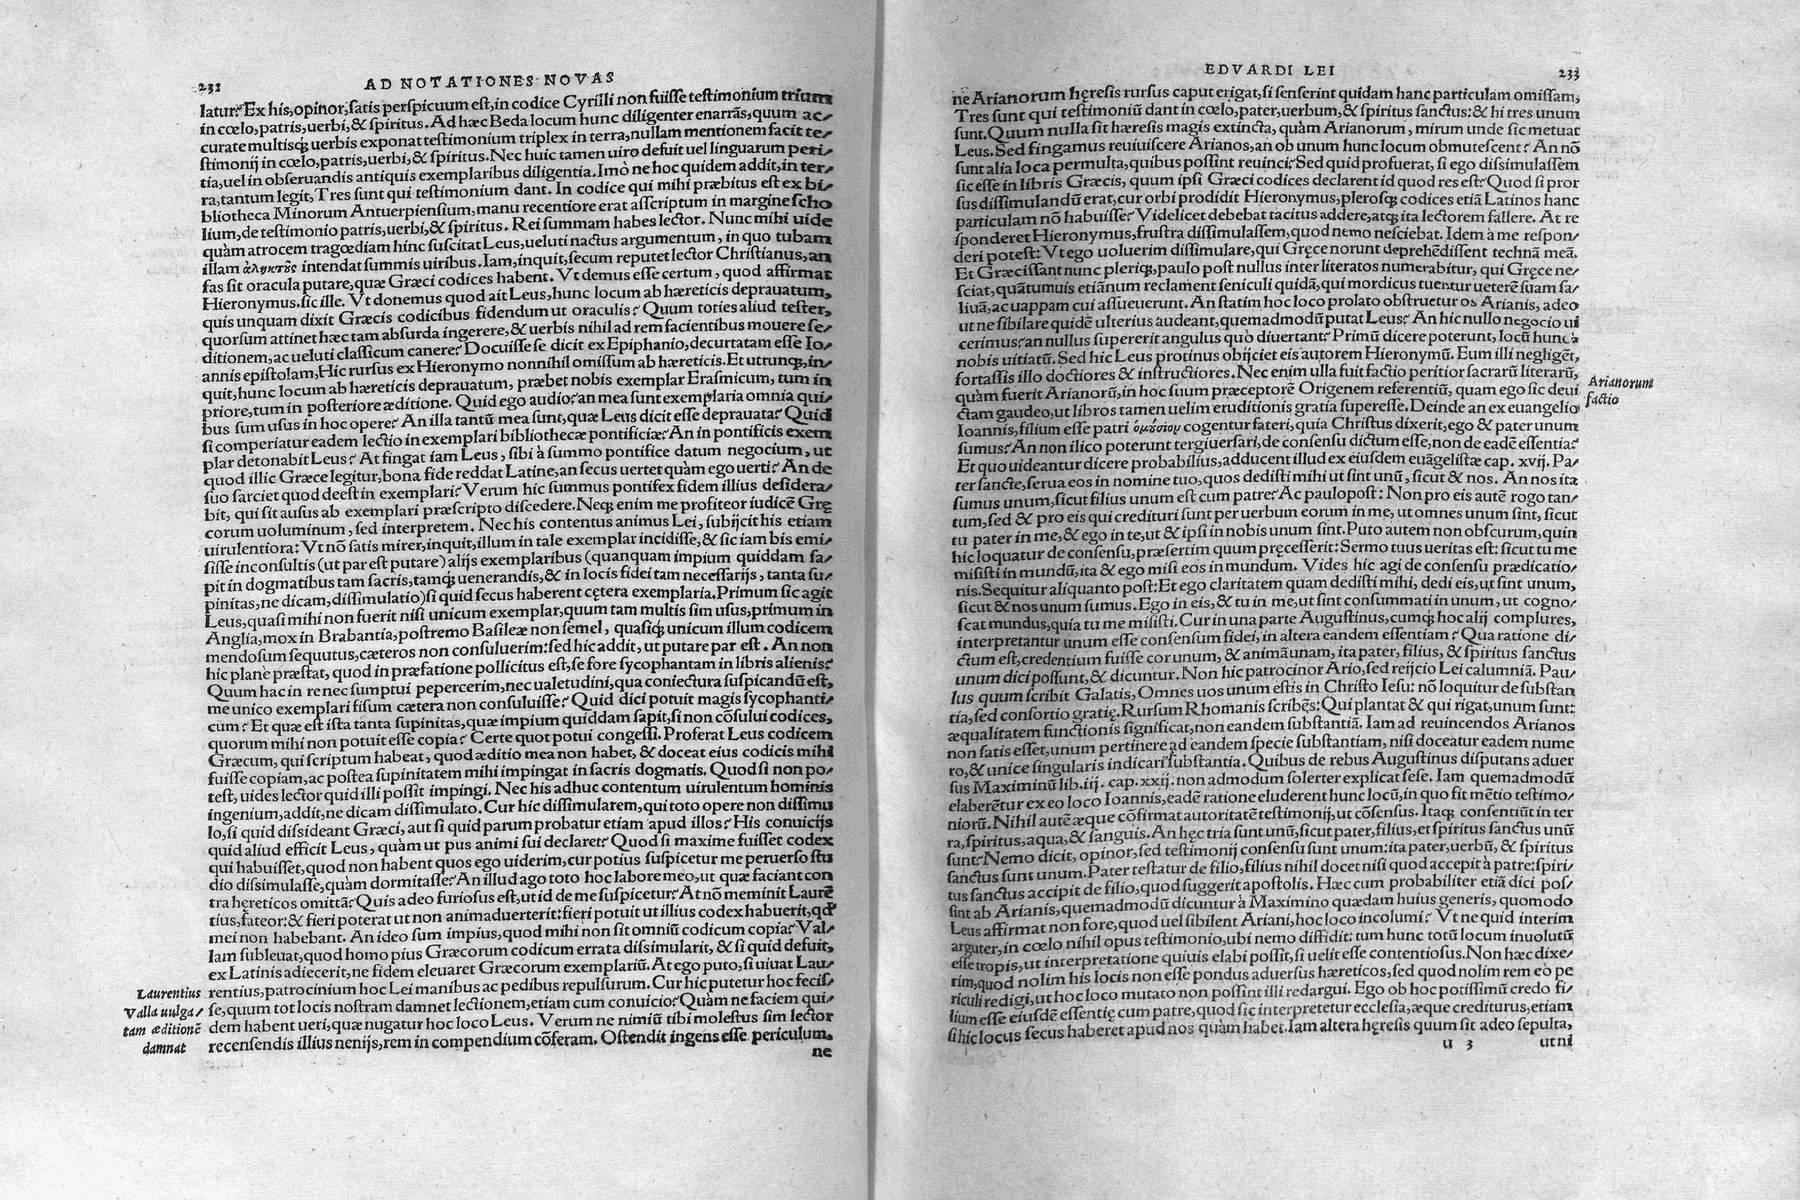 232 AD NOTATIONES NOVAS
latur? Ex his, opinor, satis perspicuum est, in codice Cyrilli non fuisse testimonium trium
in cœlo, patris, uerbi, & spiritus. Ad hæc Beda locum hunc diligenter enarrãs, quum ac-
curate multisq; uerbis exponat testimonium triplex in terra, nullam mentionem facit te-
stimonij in cœlo, patris, uerbi, & spiritus. Nec huic tamen uiro defuit uel linguarum peri-
tia, uel in obseruandis antiquis exemplaribus diligentia. Imò ne hoc quidem addit, in ter-
ra, tantum legit, Tres sunt qui testimonium dant. In codice qui mihi præbitus est ex bi-
bliotheca Minorum Antuerpiensium, manu recentiore erat asscriptum in margine scho
lium, de testimonio patris, uerbi, & spiritus. Rei summam habes lector. Nunc mihi uide
quàm atrocem tragœdiam hinc suscitat Leus, ueluti nactus argumentum, in quo tubam
illam ἀληκτὸς intendat summis uiribus. Iam, inquit, secum reputet lector Christianus, an
fas sit oracula putare, quæ Græci codices habent. Vt demus esse certum, quod affirmat
Hieronymus. sic ille. Vt donemus quod ait Leus, hunc locum ab hæreticis deprauatum,
quis unquam dixit Græcis codicibus fidendum ut oraculis? Quum toties aliud tester,
quorsum attinet hæc tam absurda ingerere, & uerbis nihil ad rem facientibus mouere se-
ditionem, ac ueluti classicum canere? Docuisse se dicit ex Epiphanio, decurtatam esse Io-
annis epistolam, Hic rursus ex Hieronymo nonnihil omissum ab hæreticis. Et utrunq;, in-
quit, hunc locum ab hæreticis deprauatum, præbet nobis exemplar Erasmicum, tum in
priore, tum in posteriore æditione. Quid ego audio? an mea sunt exemplaria omnia qui-
bus sum usus in hoc opere? An illa tantũ mea sunt, quæ Leus dicit esse deprauata? Quid
si comperiatur eadem lectio in exemplari bibliothecæ pontificiæ? An in pontificis exem
plar detonabit Leus? At fingat iam Leus, sibi à summo pontifice datum negocium, ut
quod illic Græce legitur, bona fide reddat Latine, an secus uertet quàm ego uerti? An de
suo sarciet quod deest in exemplari? Verum hic summus pontifex fidem illius desidera-
bit, qui sit ausus ab exemplari præscripto discedere. Neq; enim me profiteor iudicẽ Gręs
corum uoluminum, sed interpretem. Nec his contentus animus Lei, subijcit his etiam
uirulentiora: Vt nõ satis mirer, inquit, illum in tale exemplar incidisse, & sic iam bis emi-
sisse inconsultis (ut par est putare) alijs exemplaribus (quanquam impium quiddam sa-
pit in dogmatibus tam sacris, tamq; uenerandis, & in locis fidei tam necessarijs, tanta su-
pinitas, ne dicam, dissimulatio) si quid secus haberent cętera exemplaria. Primum sic agit
Leus, quasi mihi non fuerit nisi unicum exemplar, quum tam multis sim usus, primum in
Anglia, mox in Brabantia, postremo Basileæ non semel, quasiq; unicum illum codicem
mendosum sequutus, cæteros non consuluerim: sed hic addit, ut putare par est. An non
hic plane præstat, quod in præfatione pollicitus est, se fore sycophantam in libris alienis?
Quum hac in re nec sumptui pepercerim, nec ualetudini, qua coniectura suspicandũ est,
me unico exemplari fisum cætera non consuluisse? Quid dici potuit magis sycophanti-
cum? Et quæ est ista tanta supinitas, quæ impium quiddam sapit, si non cõsului codices,
quorum mihi non potuit esse copia? Certe quot potui congessi. Proferat Leus codicem
Græcum, qui scriptum habeat, quod æditio mea non habet, & doceat eius codicis mihi
fuisse copiam, ac postea supinitatem mihi impingat in sacris dogmatis. Quod si non po-
test, uides lector quid illi possit impingi. Nec his adhuc contentum uirulentum hominis
ingenium, addit, ne dicam dissimulato. Cur hic dissimularem, qui toto opere non dissimu
lo, si quid dissideant Græci, aut si quid parum probatur etiam apud illos? His conuicijs
quid aliud efficit Leus, quàm ut pus animi sui declaret? Quod si maxime fuisset codex
qui habuisset, quod non habent quos ego uiderim, cur potius suspicetur me peruerso stu
dio dissimulasse, quàm dormitasse? An illud ago toto hoc labore meo, ut quæ faciant con
tra hęreticos omittã? Quis adeo furiosus est, ut id de me suspicetur? At nõ meminit Laurẽ
tius, fateor: & fieri poterat ut non animaduerterit: fieri potuit ut illius codex habuerit, qđ
mei non habebant. An ideo sum impius, quod mihi non sit omniũ codicum copia? Val-
lam subleuat, quod homo pius Græcorum codicum errata dissimularit, & si quid defuit,
ex Latinis adiecerit, ne fidem eleuaret Græcorum exemplariũ. At ego puto, si uiuat Lau-
rentius, patrocinium hoc Lei manibus ac pedibus repulsurum. Cur hic putetur hoc fecis-
se, quum tot locis nostram damnet lectionem, etiam cum conuicio? Quàm ne faciem qui-
dem habent ueri, quæ nugatur hoc loco Leus. Verum ne nimiũ tibi molestus sim lector
recensendis illius nenijs, rem in compendium cõferam. Ostendit ingens esse periculum,
ne
Laurentius
Valla uulga-
tam æditionẽ
damnat
EDVARDI LEI 233
ne Arianorum hęresis rursus caput erigat, si senserint quidam hanc particulam omissam,
Tres sunt qui testimoniũ dant in cœlo, pater, uerbum, & spiritus sanctus: & hi tres unum
sunt. Quum nulla sit hæresis magis extincta, quàm Arianorum, mirum unde sic metuat
Leus. Sed fingamus reuiuiscere Arianos, an ob unum hunc locum obmutescent? An nõ
sunt alia loca permulta, quibus possint reuinci? Sed quid profuerat, si ego dissimulassem
sic esse in libris Græcis, quum ipsi Græci codices declarent id quod res est? Quod si pror
sus dissimulandũ erat, cur orbi prodidit Hieronymus, plerosq; codices etiã Latinos hanc
particulam nõ habuisse? Videlicet debebat tacitus addere, atq; ita lectorem fallere. At re
sponderet Hieronymus, frustra dissimulassem, quod nemo nesciebat. Idem à me respon-
deri potest: Vt ego uoluerim dissimulare, qui Gręce norunt deprehẽdissent technã meã.
Et Græcissant nunc pleriq;, paulo post nullus inter literatos numerabitur, qui Gręce ne-
sciat, quãtumuis etiãnum reclament seniculi quidã, qui mordicus tuentur ueterẽ suam sa-
liuã, ac uappam cui assueuerunt. An statim hoc loco prolato obstruetur os Arianis, adeo
ut ne sibilare quidẽ ulterius audeant, quemadmodũ putat Leus? An hic nullo negocio ui
cerimus? an nullus supererit angulus quò diuertant? Primũ dicere poterunt, locũ hunc à
nobis uitiatũ. Sed hic Leus protinus obijciet eis autorem Hieronymũ. Eum illi negligẽt,
fortassis illo doctiores & instructiores. Nec enim ulla fuit factio peritior sacrarũ literarũ,
quàm fuerit Arianorũ, in hoc suum præceptorẽ Origenem referentiũ, quam ego sic deui
ctam gaudeo, ut libros tamen uelim eruditionis gratia superesse. Deinde an ex euangelio
Ioannis, filium esse patri ὁμούσιον cogentur fateri, quia Christus dixerit, ego & pater unum
sumus? An non ilico poterunt tergiuersari, de consensu dictum esse, non de eadẽ essentia?
Et quo uideantur dicere probabilius, adducent illud ex eiusdem euãgelistæ cap. xvij. Pa-
ter sancte, serua eos in nomine tuo, quos dedisti mihi ut sint unũ, sicut & nos. An nos ita
sumus unum, sicut filius unum est cum patre? Ac paulopost: Non pro eis autẽ rogo tan-
tum, sed & pro eis qui credituri sunt per uerbum eorum in me, ut omnes unum sint, sicut
tu pater in me, & ego in te, ut & ipsi in nobis unum sint. Puto autem non obscurum, quin
hic loquatur de consensu, præsertim quum pręcesserit: Sermo tuus ueritas est: sicut tu me
misisti in mundũ, ita & ego misi eos in mundum. Vides hic agi de consensu prædicatio-
nis. Sequitur aliquanto post: Et ego claritatem quam dedisti mihi, dedi eis, ut sint unum,
sicut & nos unum sumus. Ego in eis, & tu in me, ut sint consummati in unum, ut cogno-
scat mundus, quia tu me misisti. Cur in una parte Augustinus, cumq; hoc alij complures,
interpretantur unum esse consensum fidei, in altera eandem essentiam? Qua ratione di-
ctum est, credentium fuisse cor unum, & animã unam, ita pater, filius, & spiritus sanctus
unum dici possunt, & dicuntur. Non hic patrocinor Ario, sed reijcio Lei calumniã. Pau-
lus quum scribit Galatis, Omnes uos unum estis in Christo Iesu: nõ loquitur de substan
tia, sed consortio gratię. Rursum Rhomanis scribẽs: Qui plantat & qui rigat, unum sunt:
æqualitatem functionis significat, non eandem substantiã. Iam ad reuincendos Arianos
non satis esset, unum pertinere ad eandem specie substantiam, nisi doceatur eadem nume
ro, & unice singularis indicari substantia. Quibus de rebus Augustinus disputans aduer
sus Maximinũ lib. iij. cap. xxij: non admodum solerter explicat sese. Iam quemadmodũ
elaberẽtur ex eo loco Ioannis, eadẽ ratione eluderent hunc locũ, in quo fit mẽtio testimo-
niorũ. Nihil autẽ æque cõfirmat autoritatẽ testimonij, ut cõsensus. Itaq; consentiũt in ter
ra, spiritus, aqua, & sanguis. An hęc tria sunt unũ, sicut pater, filius, et spiritus sanctus unũ
sunt? Nemo dicit, opinor, sed testimonij consensu sunt unum: ita pater, uerbũ, & spiritus
sanctus sunt unum. Pater testatur de filio, filius nihil docet nisi quod accepit à patre: spiri-
tus sanctus accipit de filio, quod suggerit apostolis. Hæc cum probabiliter etiã dici pos-
sint ab Arianis, quemadmodũ dicuntur à Maximino quædam huius generis, quomodo
Leus affirmat non fore, quod uel sibilent Ariani, hoc loco incolumi? Vt ne quid interim
arguter, in cœlo nihil opus testimonio, ubi nemo diffidit: tum hunc totũ locum inuolutũ
esse tropis, ut interpretatione quiuis elabi possit, si uelit esse contentiosus. Non hæc dixe-
rim, quod nolim his locis non esse pondus aduersus hæreticos, sed quod nolim rem eò pe
riculi redigi, ut hoc loco mutato non possint illi redargui. Ego ob hoc potissimũ credo fi-
lium esse eiusdẽ essentię cum patre, quod sic interpretetur ecclesia, æque crediturus, etiam
si hic locus secus haberet apud nos quàm habet. Iam altera hęresis quum sit adeo sepulta,
u 3 ut ni
Arianorum
factio